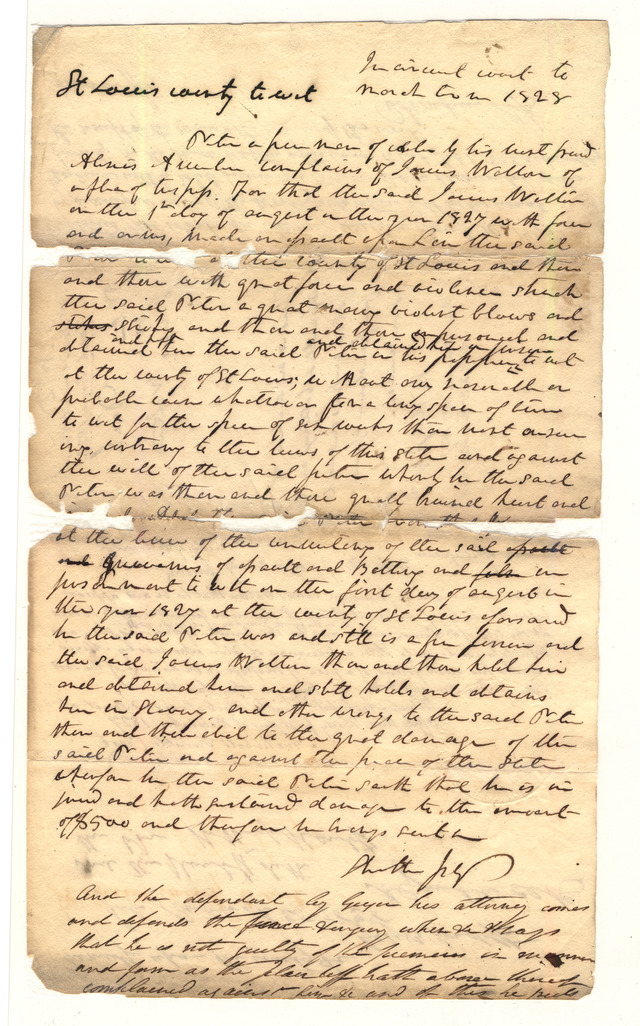 In circuit court to
St Louis county to wit
March term 1828
Peter a free man of color by his next friend
complains of James Walton of
a plea of trespass. For that the said James Walton
on the 1st day of august in the year 1827 with force
and arms, made an assault upon him the said
the county of St Louis and then
and there with great force and violence struck
the said Peter a great many violent blows and
strokes and then and there imprisoned and
and detained him in prison
detained him the said Peter in his to wit
at the county of St Louis, without any reasonable or
probable cause whatsoever for a long space of time
to wit for the space of six weeks then next ensu
ing, contrary to the laws of this state and against
the will of the said Peter whereby he the said
Peter was then and there greatly bruised hurt and
at the time of the committing of the said assault
and grievances of assault and Battery and false im
prisonment to wit on the first day of august in
the year 1827 at the county of St Louis aforesaid
he the said Peter was and still is a free person and
the said James Walton then and there held him
and detained him and still holds and detains
him in Slavery. and other wrongs to the said Peter
then and there did to the great damage of the
said Peter and against the peace of the State
Wherefore he the said Peter saith that he is in
jured and hath sustained damage to the amount
of $500 and therefore he brings suit &c
And the defendant by Geyer his attorney comes
and defends the force & injury when &c & says
that he is not guilty of the premises in manner
and form as the plaintiff hath above thereof
complained against him & and of this he puts